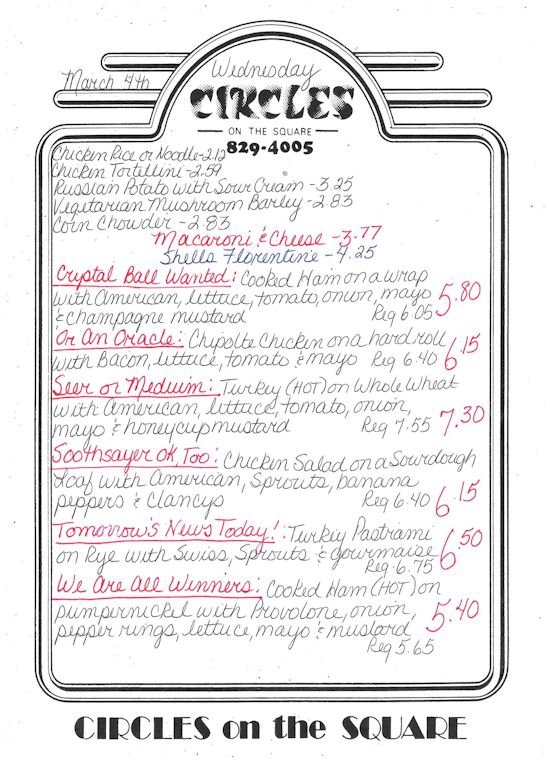 March 4th
Wednesday
CIRCLES
ON THE SQUARE
829-4005
Chicken Rice or Noodle-2.12
Chicken Tortellini -2.59
Russian Potato with Sour Cream -3.25
Vegetarian Mushroom Barley -2.83
Corn Chowder -2.83
Macaroni & Cheese -3.77
Shells Florentine -4.25
Crystal Ball Wanted: Cooked Ham on a wrap
with American, lettuce, tomato, onion, mayo
& champagne mustard Reg 6.05 5.80
Or An Oracle: Chipolte Chicken on a hard roll
with Bacon, lettuce, tomato & mayo Reg 6.40 6.15
Seer or Medium: Turkey (HOT) on Whole Wheat
with American, lettuce, tomato, onion,
mayo & honeycup mustard Reg 7.55 7.30
Soothsayer OK, Too: Chicken Salad on a Sourdough
Loaf with American, Sprouts, banana
peppers & Clancys Reg 6.40 6.15
Tomorrow's News Today!: Turkey Pastrami
on Rye with Swiss, Sprouts & gourmaise 6.50
Reg 6.75
We Are All Winners: Cooked Ham (HOT) on
pumpernickel with Provolone, onion,
pepper rings, lettuce, mayo & mustard 5.40
Reg 5.65
CIRCLES on the SQUARE